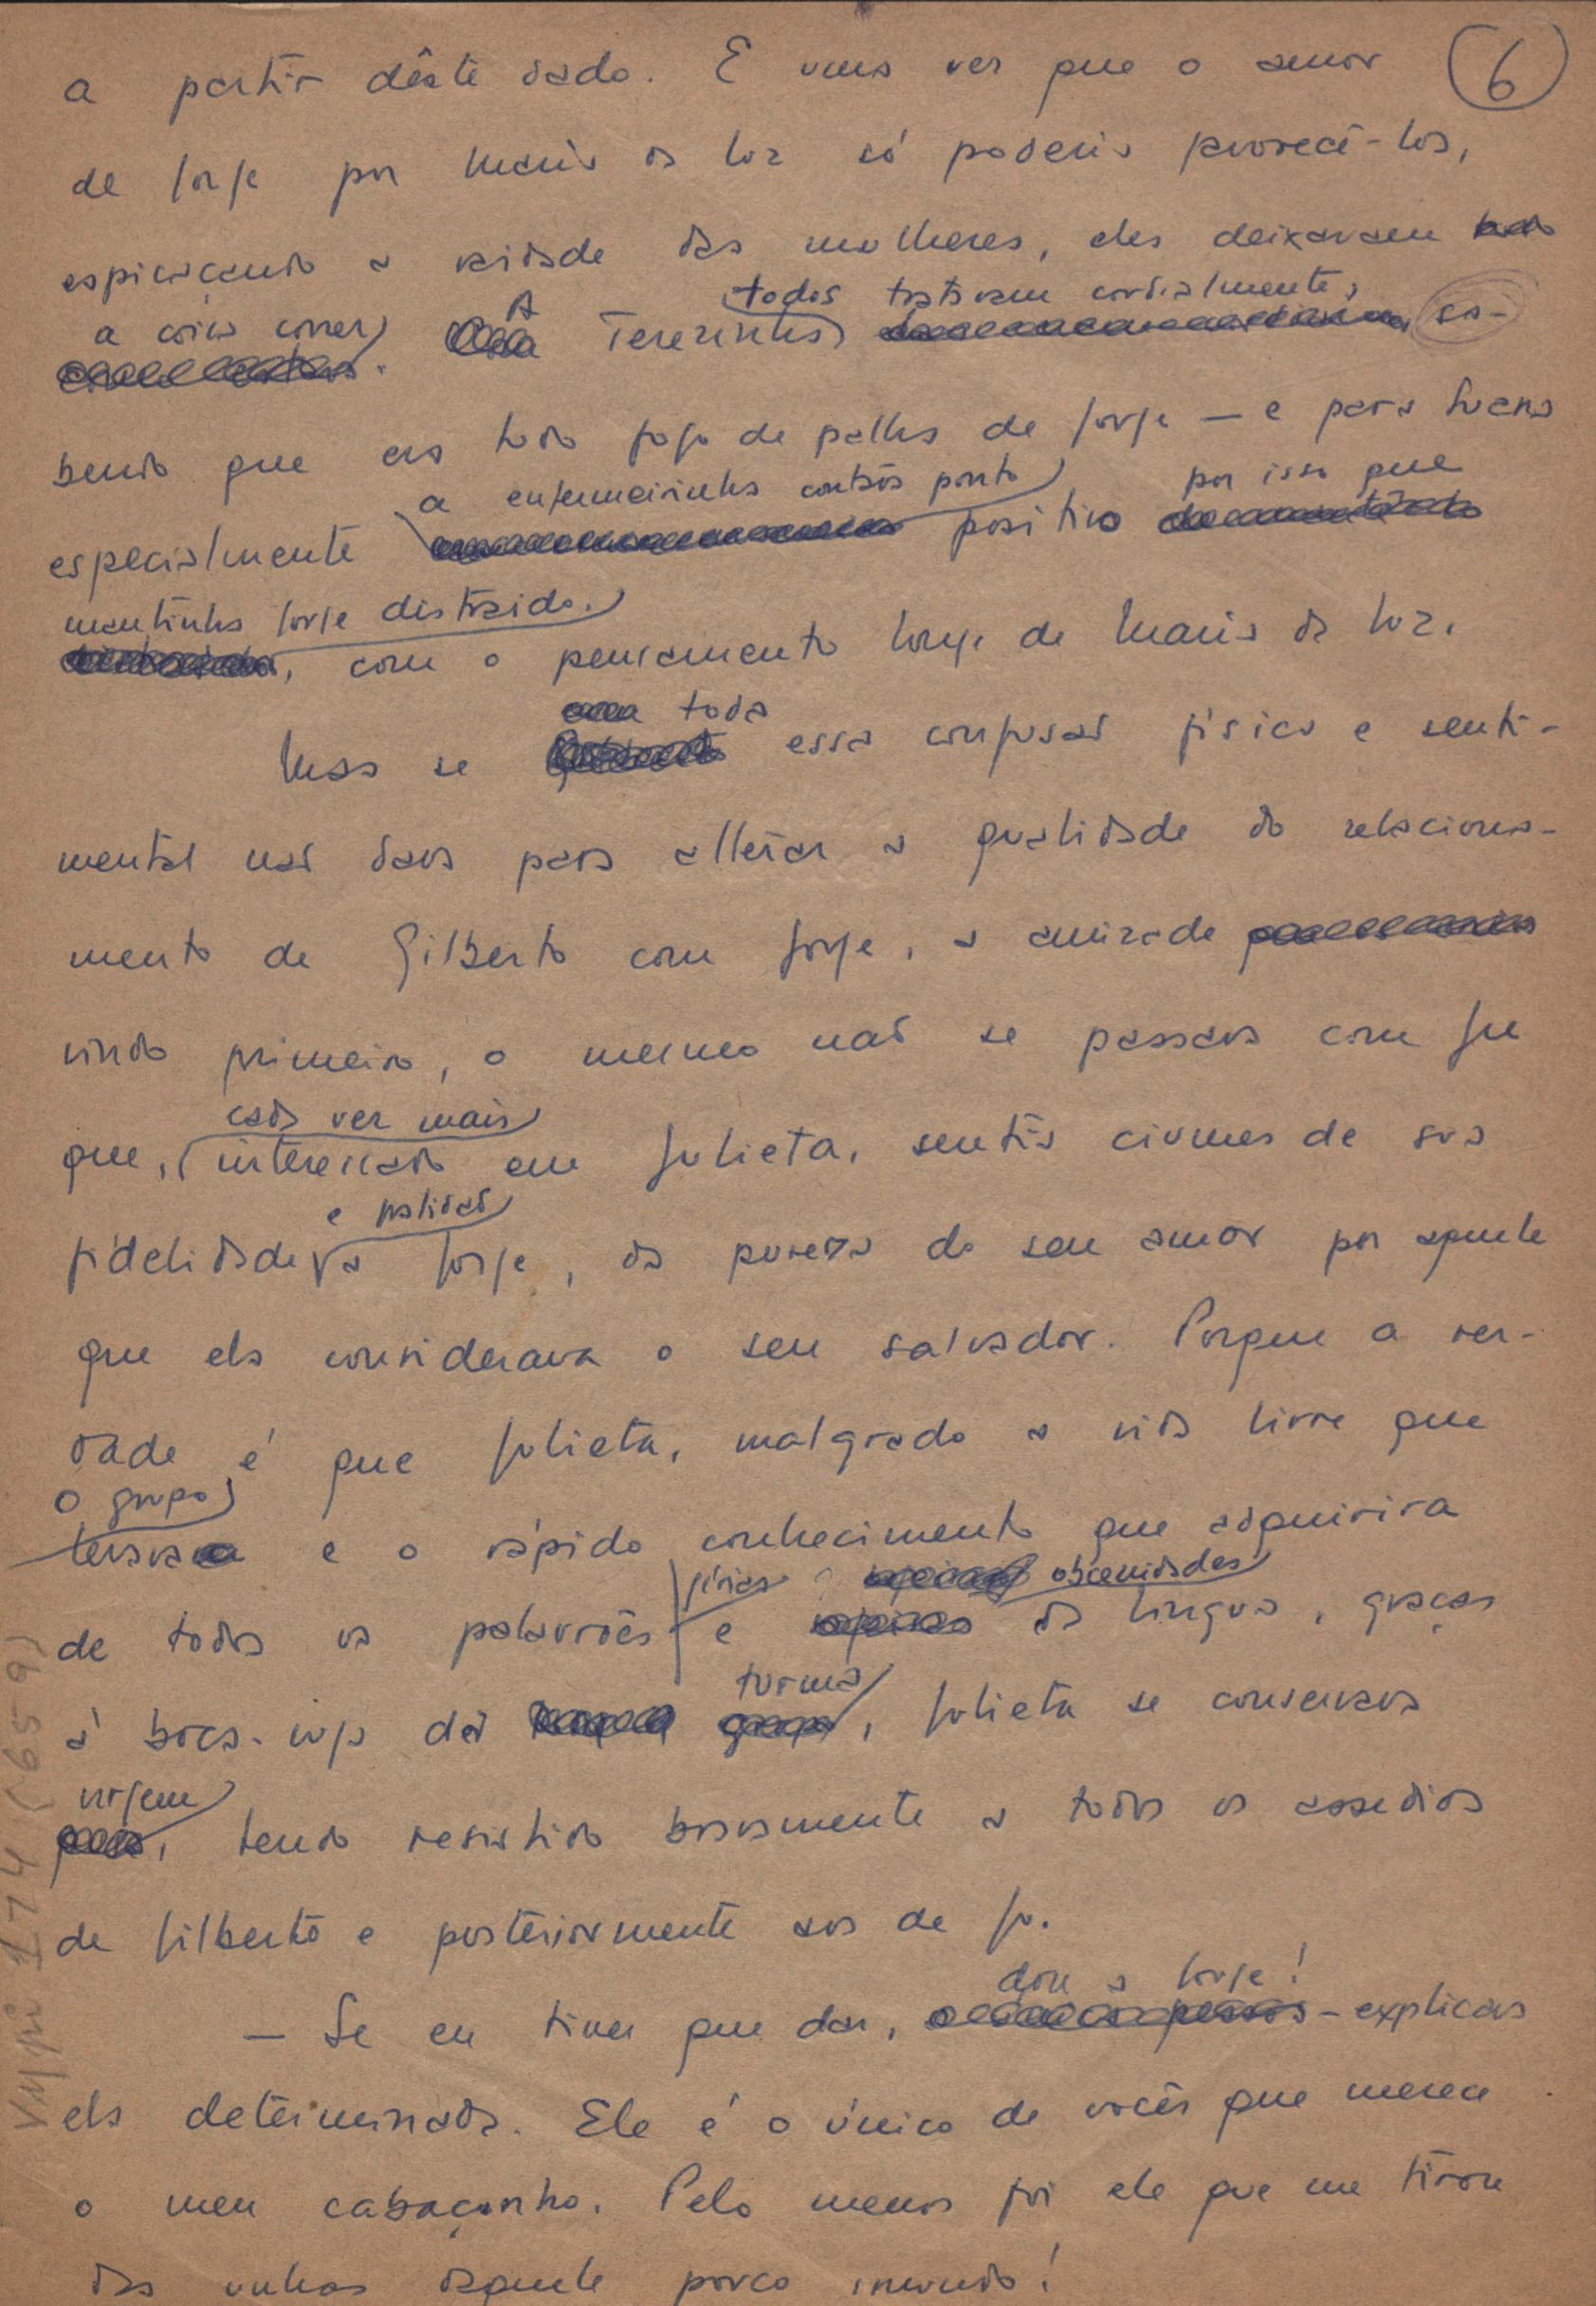 a partir dêste dado. E uma vez que o amor 6
de Jorge por Maria da Luz só poderia favorecê-los,
espicaçando a vaidade das mulheres, eles deixavam
a coisa correr. A Terezinha todos tratavam cordialmente, sa-
bendo que era tudo fogo de palha de Jorge — e para Luana
especialmente a enfermeirinha contava ponto positivo por isso que
mantinha Jorge distraido, com o pensamento longe de Maria da Luz.
Mas se toda essa confusão física e senti-
mental não dava para alterar a qualidade do relaciona-
mento de Gilberto com Jorge, a amizade
vindo primeiro, o mesmo não se passava com Ju
que, cada vez mais interessado em Julieta, sentia ciumes de sua
fidelidade e paixão a Jorge, da pureza do seu amor por aquele
que ela considerava o seu salvador. Porque a ver-
dade é que Julieta, malgrado a vida livre que
o grupo levava e o rápido conhecimento que adquirira
de todos os palavrões, gírias e obcenidades da lingua, graças
à boca-suja da turma, Julieta se conservava
virgem, tendo resistido bravamente a todos os assedios
de Gilberto e posteriormente aos de Ju.
— Se eu tiver que dar, dou a Jorge! - explicava
ela determinada. Ele é o único de vocês que merece
o meu cabaçinho. Pelo menos foi ele que me tirou
das unhas daquele porco imundo!
VMpi 174 (659)